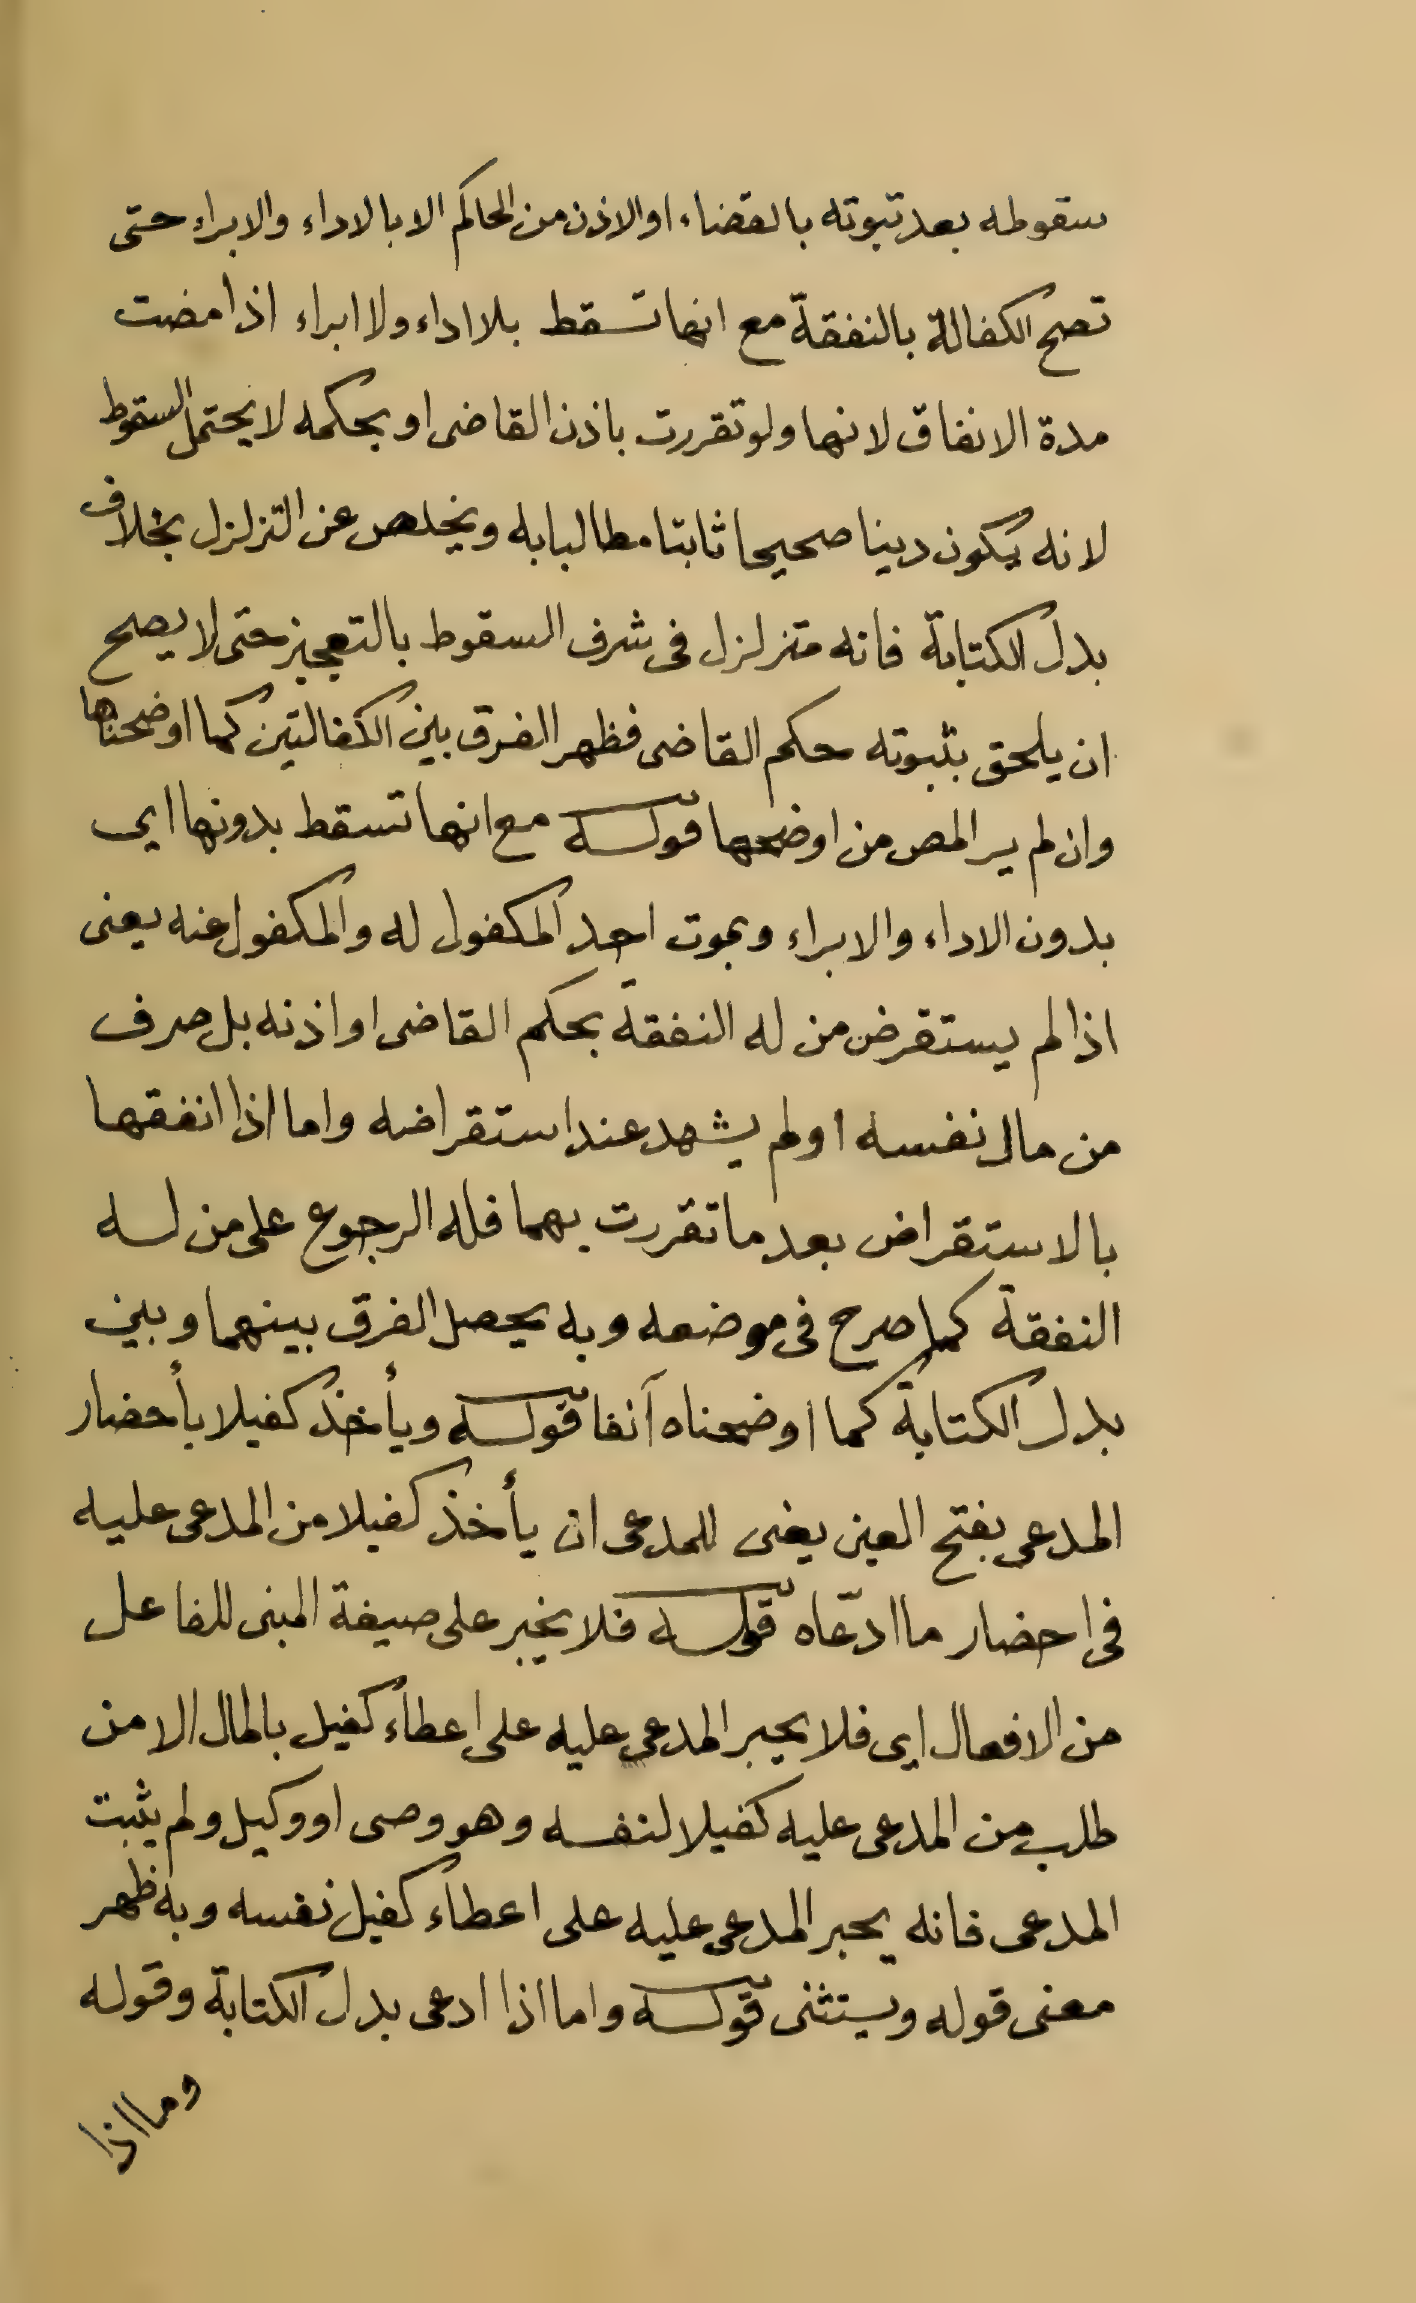 سقوطه بعد ثبوته بالقضاء او الاذن من الحاكم الا بالاداء والابراء حتى
تصح الكفالة بالنفقة مع انها تسقط بلا اداء ولا ابراء اذا مضت
مدة الانفاق لانها ولو تقررت باذن القاضى او بحكمه لا يحتمل السقوط
لانه يكون دينا صحيحا ثابتا مطالبا به ويخلص عن التزلزل بخلاف
بدل الكتابة فانه متزلزل فى شرف السقوط بالتعجيز حتى لا يصح
ان يلحق بثبوته حكم القاضى فظهر الفرق بين الكفالتين كما اوضحناها
وان لم ير المص من اوضحها قوله مع انها تسقط بدونها اى
بدون الاداء والابراء وبموت احد المكفول له والمكفول عنه يعنى
اذا لم يستقرض من له النفقة بحكم القاضى او اذنه بل صرف
من مال نفسه او لم يشهد عند استقراضه واما اذا انفقها
بالاستقراض بعد ما تقررت بهما فله الرجوع على من له
النفقة كما صرح فى موضعه وبه يحصل الفرق بينهما وبين
بدل الكتابة كما اوضحناه آنفا قوله ويأخذ كفيلا بأحضار
المدعى بفتح العين يغنى للمدعى ان يأخذ كفيلا من المدعى عليه
فى احضار ما ادّعاه قوله فلا يخبر على صيغة المبنى للفاعل
من الافعال اى فلا يجبر المدعى عليه على اعطاء كفيل بالمال الا من
طلب من المدعى عليه كفيلا لنفسه وهو وصى او وكيل ولم يثبت
المدعى فانه يجبر المدعى عليه على اعطاء كفيل نفسه وبه ظهر
معنى قوله ويستثنى قوله واما اذا ادعى بدل الكتابة وقوله
وما اذا